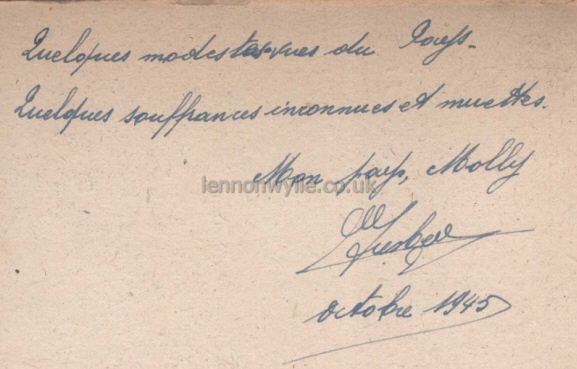 Quelques modestes vues du Pays.
Quelques souffrances inconnues et muettes.
Mon pays, Molly
lennonwylie.co.uk
octobre 1945